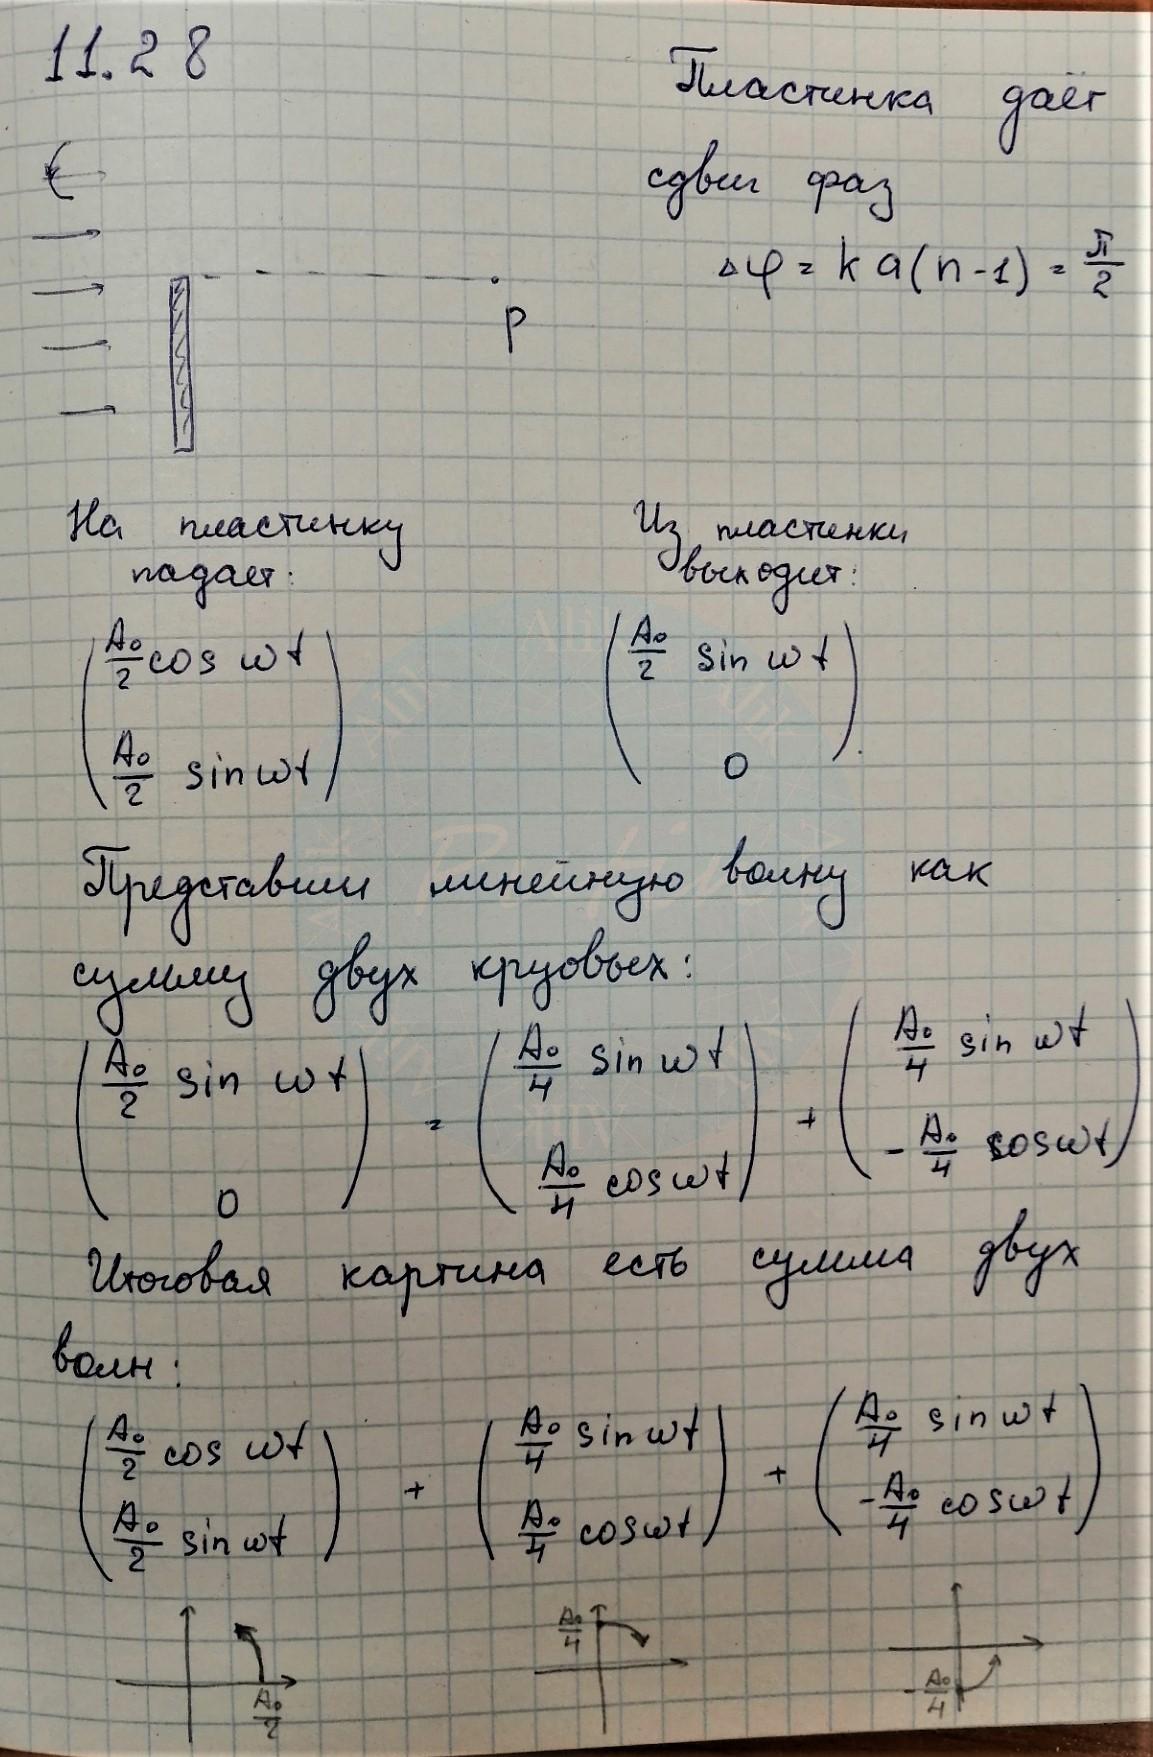 11.28
Пластинка даёт
сдвиг фаз
Δφ = k a(n-1) = π/2
P
На пластинку
падает:
Из пластинки
выходит:
(A₀/2 cos ωt
A₀/2 sin ωt)
(A₀/2 sin ωt
0)
Представим линейную волну как
сумму двух круговых:
(A₀/2 sin ωt
0) = (A₀/4 sin ωt
A₀/4 cos ωt) + (A₀/4 sin ωt
- A₀/4 cos ωt)
Итоговая картина есть сумма двух
волн:
(A₀/2 cos ωt
A₀/2 sin ωt) + (A₀/4 sin ωt
A₀/4 cos ωt) + (A₀/4 sin ωt
- A₀/4 cos ωt)
A₀/2
A₀/4
- A₀/4